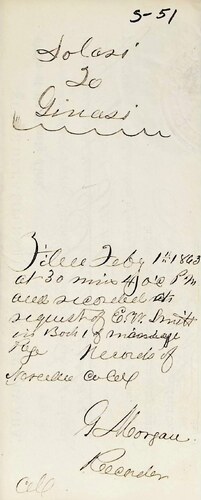 S-51
Solari
To
Ginasi
Filed Feby 1st 1863
at 30 min 4 O'c P.M
and recorded at
request of E.W. Smith
in Book 1 of marriage
Page Records of
Co Cal
G Morgan
Recorder
Cal